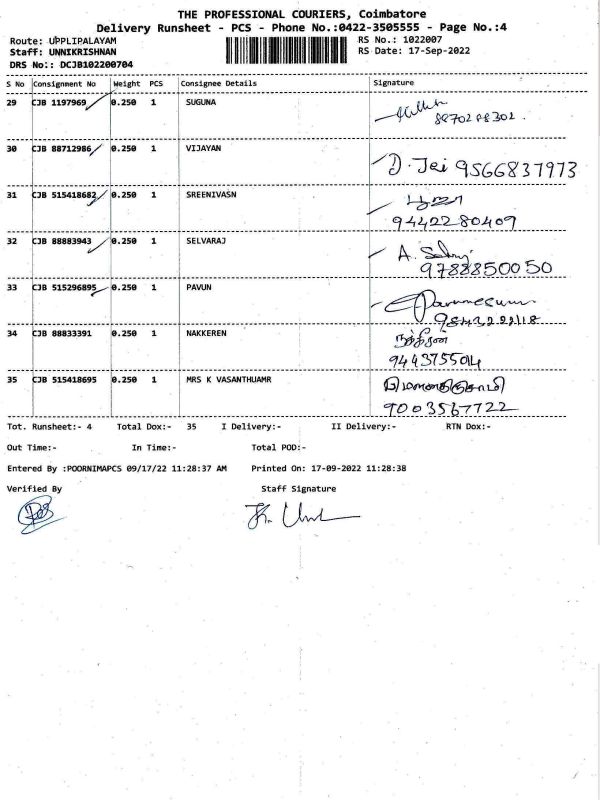 THE PROFESSIONAL COURIERS, Coimbatore
Delivery Runsheet - PCS - Phone No.:0422-3505555 - Page No.:4
Route: UPPLIPALAYAM RS No.: 1022007
Staff: UNNIKRISHNAN RS Date: 17-Sep-2022
DRS No:: DCJB102200704
S No Consignment No Weight PCS Consignee Details Signature
29 CJB 1197969 0.250 1 SUGUNA
30 CJB 88712986 0.250 1 VIJAYAN D. Jai 9566837973
31 CJB 515418682 0.250 1 SREENIVASN
9442280409
32 CJB 88883943 0.250 1 SELVARAJ A.
9788850050
33 CJB 515296895 0.250 1 PAVUN
34 CJB 88833391 0.250 1 NAKKEREN
9443755014
35 CJB 515418695 0.250 1 MRS K VASANTHUAMR
9003567722
Tot. Runsheet:- 4 Total Dox:- 35 I Delivery:- II Delivery:- RTN Dox:-
Out Time:- In Time:- Total POD:-
Entered By :POORNIMAPCS 09/17/22 11:28:37 AM Printed On: 17-09-2022 11:28:38
Verified By Staff Signature